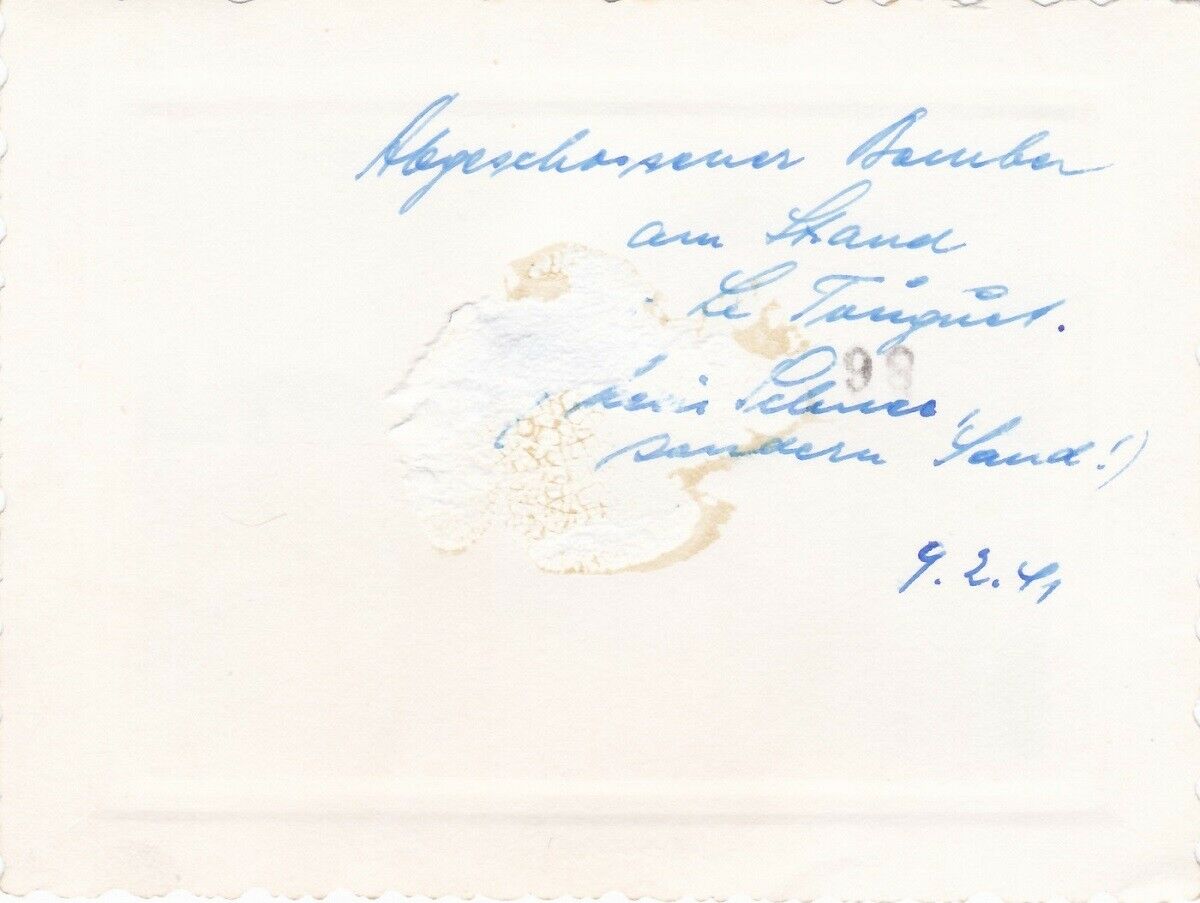 Abgeschossener Bomber
am Strand
Le Touquet.
98
(kein Schnee,
sondern Sand!)
9.2.41